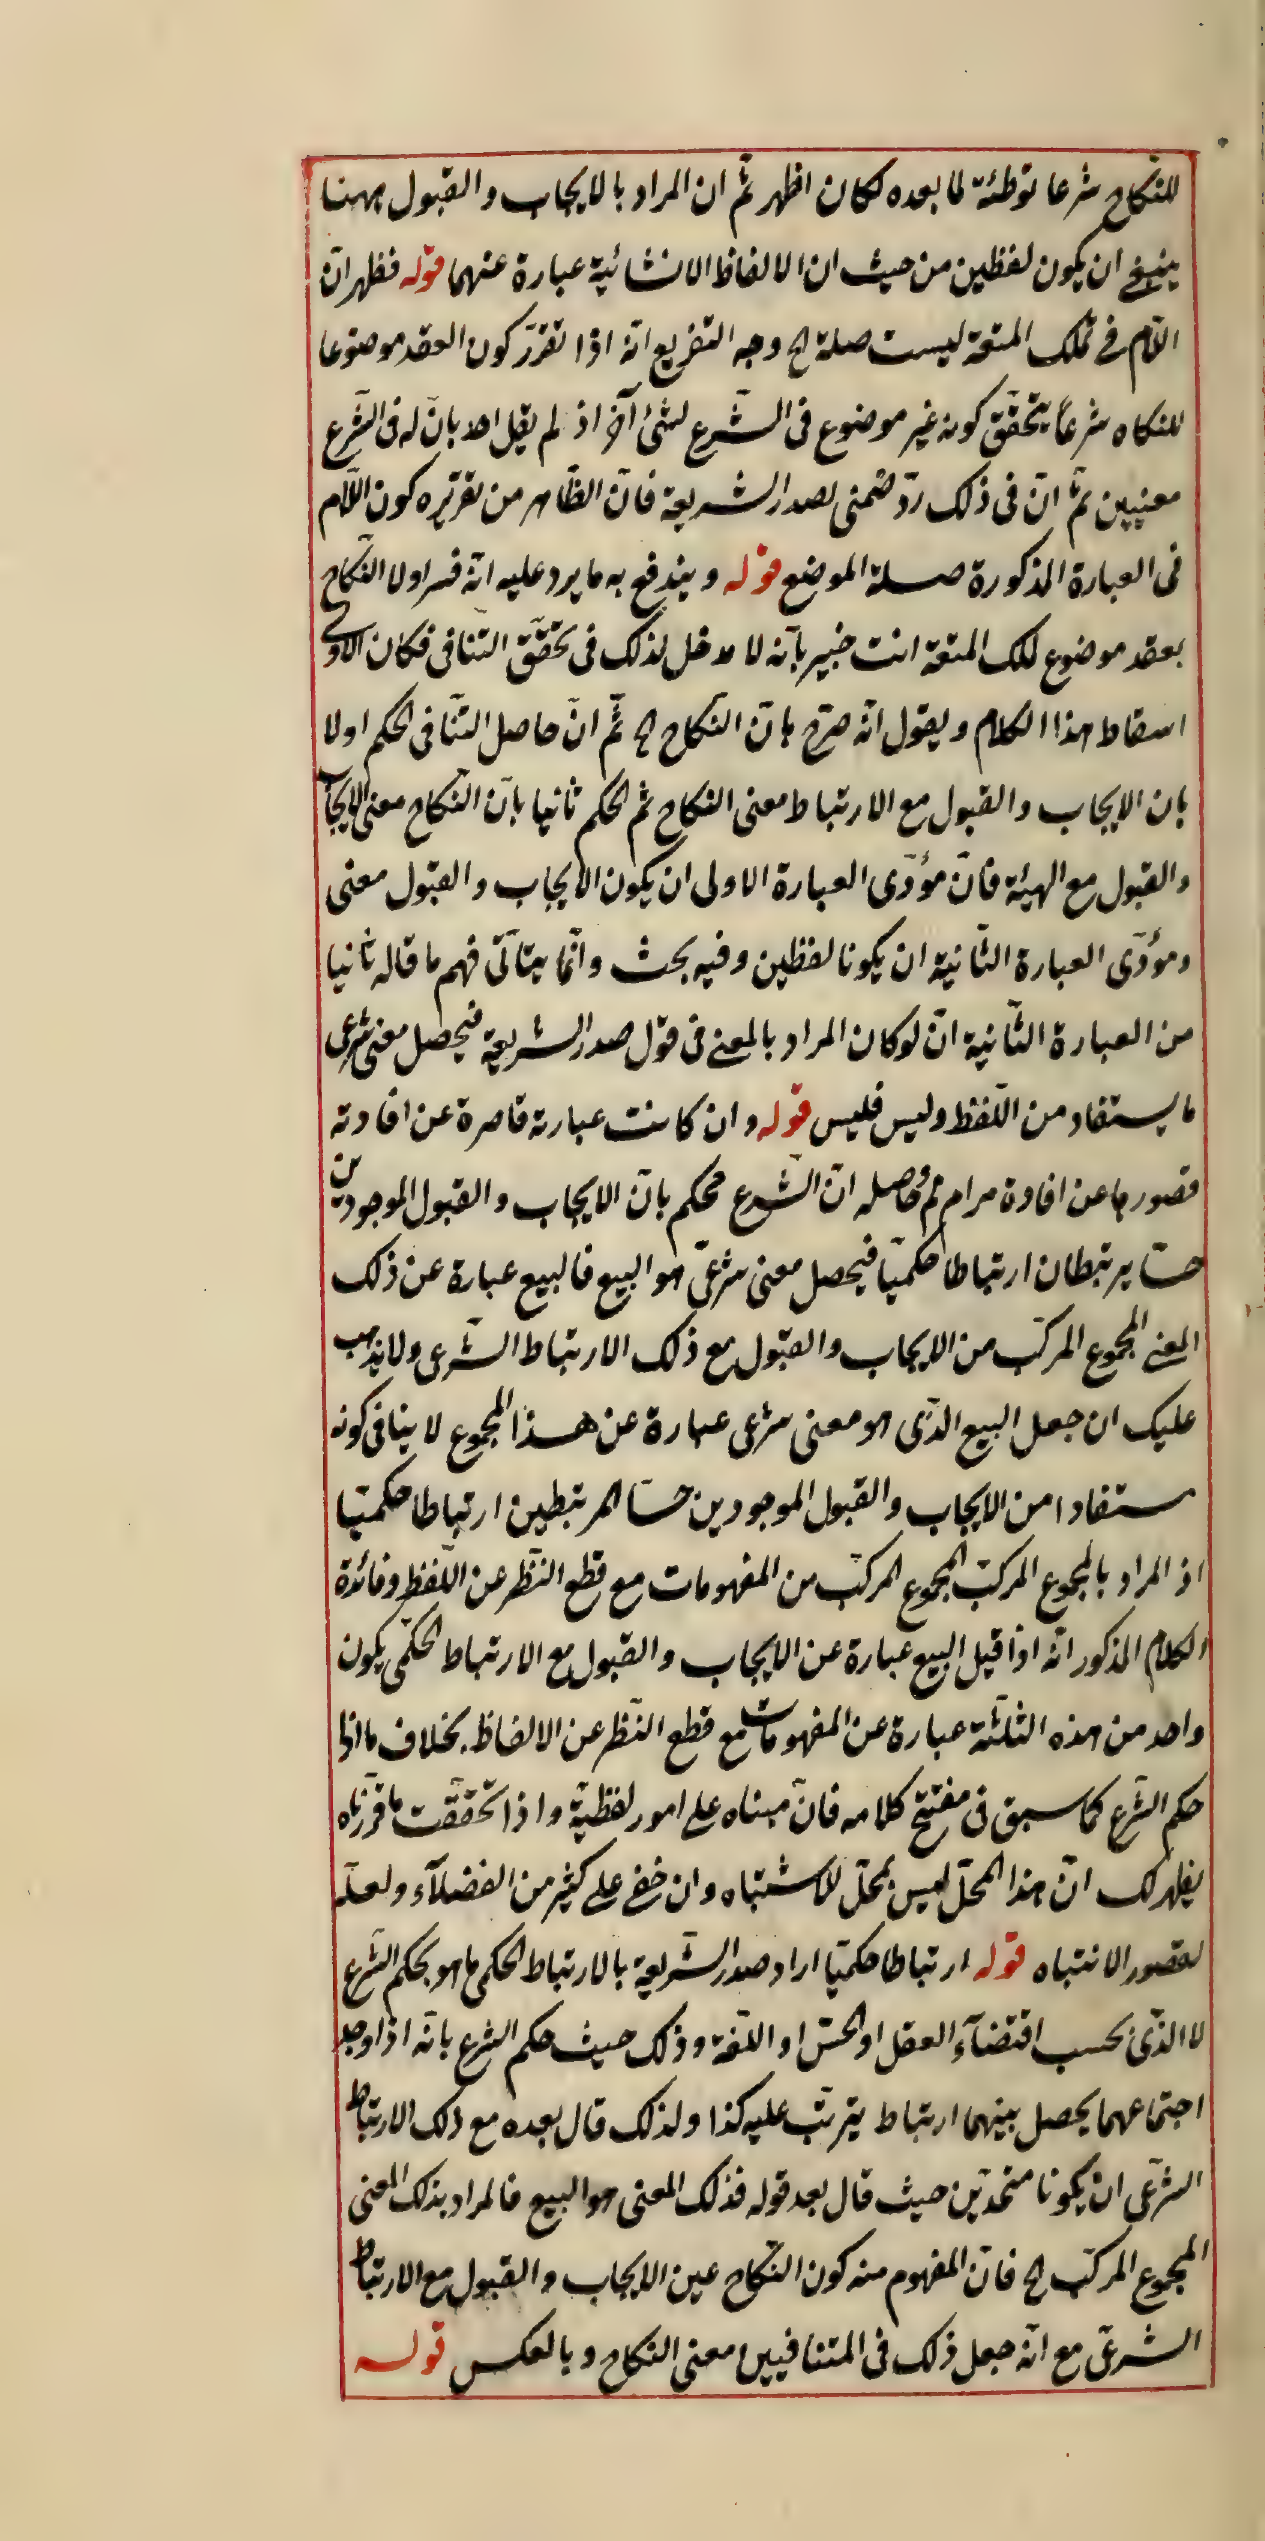 للنّكاح شرعا توطئة لما بعده لكان اظهر ثمّ ان المراد بالايجاب والقبول ههنا
ينبغى ان يكون لفظين من حيث ان الالفاظ الانشائية عبارة عنهما قوله فظهر انّ
اللّام فى لملك المتعة ليست صلة الخ وجه التفريع انّه اذا تقرّر كون العقد موضوعا
للنكاح شرعاً يتحقّق كونه غير موضوع فى الشّرع لشئ آخر اذ لم يقل احد بانّ له فى الشّرع
معنيين ثمّ انّ فى ذلك ردّ ضمنى لصدر الشريعة فانّ الظّاهر من تقريره كون اللّام
فى العبارة المذكورة صلة الموضع قوله ويندفع به ما يرد عليه انّه فسر اولا النّكاح
بعقد موضوع لملك المتعة انت خبير بانّه لا مدخل لذلك فى تحقّق التّنافى فكان الاولى
اسقاط هذا الكلام ويقول انّه صرّح بانّ النّكاح الخ ثمّ انّ حاصل التّنافى الحكم اولا
بان الايجاب والقبول مع الارتباط معنى النكاح ثم الحكم ثانيا بانّ النّكاح معنى الايجاب
والقبول مع الهيئة فانّ مؤدّى العبارة الاولى ان يكون الايجاب والقبول معنى
ومؤدّى العبارة الثّانية ان يكونا لفظين وفيه بحث وانّما يتأتّى فهم ما قاله ثانيا
من العبارة الثّانية انّ لو كان المراد بالمعنى فى قول صدر الشريعة فيحصل معنى شرعى
ما يستفاد من اللّفظ وليس فليس قوله وان كانت عبارته قاصرة عن افادته
قصورها عن افادة مرام ثم وحاصله انّ الشّرع يحكم بانّ الايجاب والقبول الموجودين
حسّا يرتبطان ارتباطا حكميّا فيحصل معنى شرعىّ هو البيع فالبيع عبارة عن ذلك
المعنى المجموع المركّب من الايجاب والقبول مع ذلك الارتباط الشّرعى ولا يذهب
عليك ان جعل البيع الذّى هو معنى شرعى عبارة عن هذا المجموع لا ينافى كونه
مستفادا من الايجاب والقبول الموجودين حسّا المرتبطين ارتباطا حكميّا
اذ المراد بالمجموع المركّب المجموع المركّب من المفهومات مع قطع النّظر عن اللّفظ وفائدة
الكلام المذكور انّه اذا قيل البيع عبارة عن الايجاب والقبول مع الارتباط الحكمى يكون
واحد من هذه الثلثة عبارة عن المفهومات مع قطع النّظر عن الالفاظ بخلاف ما اذا
حكم الشّرع كما سبق فى مفتتح كلامه فانّ مبناه على امور لفظيّة واذا تحقّقت ما قرّرناه
يظهر لك انّ هذا المحلّ ليس بمحلّ للاشتباه وان خفى على كثير من الفضلآء ولعلّه
لقصور الانتباه قوله ارتباطا حكميّا اراد صدر الشّريعة بالارتباط الحكمى ما هو بحكم الشّرع
لا الذّى بحسب اقتضآء العقل او الحسّ او اللّغة وذلك حيث حكم الشرع بانّه اذا وجد
اجتماعهما يحصل بينهما ارتباط يترتّب عليه كذا ولذلك قال بعده مع ذلك الارتباط
الشّرعى ان يكونا متّحدّين حيث قال بعد قوله فذلك المعنى هو البيع فالمراد بذلك المعنى
المجموع المركّب الخ فانّ المفهوم منه كون النّكاح عين الايجاب والقبول مع الارتباط
الشّرعىّ مع انّه جعل ذلك فى المتنافيين معنى النكاح وبالعكس قوله